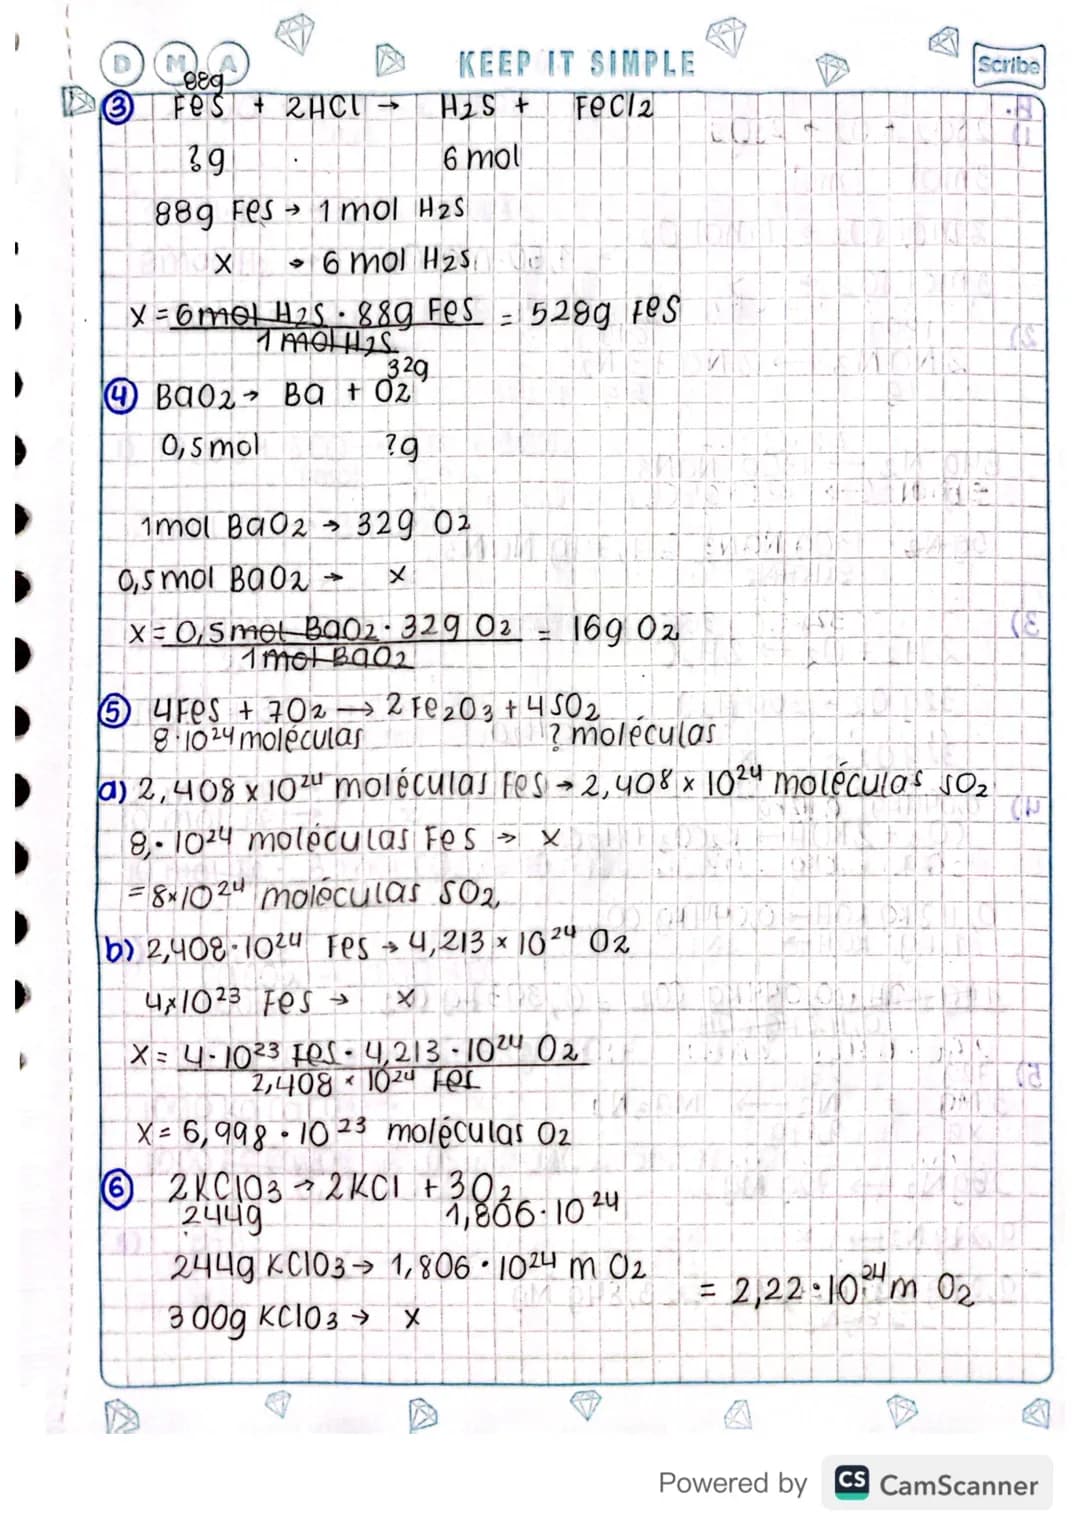 D M A KEEP IT SIMPLE Scribe
88g
③ FeS + 2HCl → H2S + FeCl2
?g 6 mol
88g FeS → 1 mol H2S
x → 6 mol H2S
x = 6mol H2S · 88g FeS = 528g FeS
1 mol H2S
32g
④ BaO2 → Ba + O2
0,5mol ?g
1mol BaO2 → 32g O2
0,5mol BaO2 → x
x = 0,5mol BaO2 · 32g O2 = 16g O2
1mol BaO2
⑤ 4FeS + 7O2 → 2Fe2O3 + 4SO2
8·10²⁴ moléculas ? moléculas
a) 2,408 x 10²⁴ moléculas FeS → 2,408 x 10²⁴ moléculas SO2
8,· 10²⁴ moléculas FeS → x
= 8x10²⁴ moléculas SO2,
b) 2,408·10²⁴ FeS → 4,213 x 10²⁴ O2
4x10²³ FeS → x
x = 4·10²³ FeS · 4,213·10²⁴ O2
2,408 x 10²⁴ FeS
x = 6,998 · 10²³ moléculas O2
⑥ 2KClO3 → 2KCl + 3O2
244g 1,806·10²⁴
244g KClO3 → 1,806·10²⁴ m O2
= 2,22·10²⁴ m O2
300g KClO3 → x
Powered by CS CamScanner